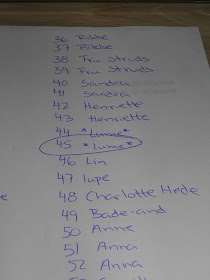 36 Rikke
37 Rikke
38 Fru Struds
39 Fru Struds
40 Sandra
41 Sandra
42 Henriette
43 Henriette
44 *Lume*
45 *Lume*
46 Lin
47 lupe
48 Charlotte Hede
49 Bade-and
50 Anne
51 Anna
52 Anna